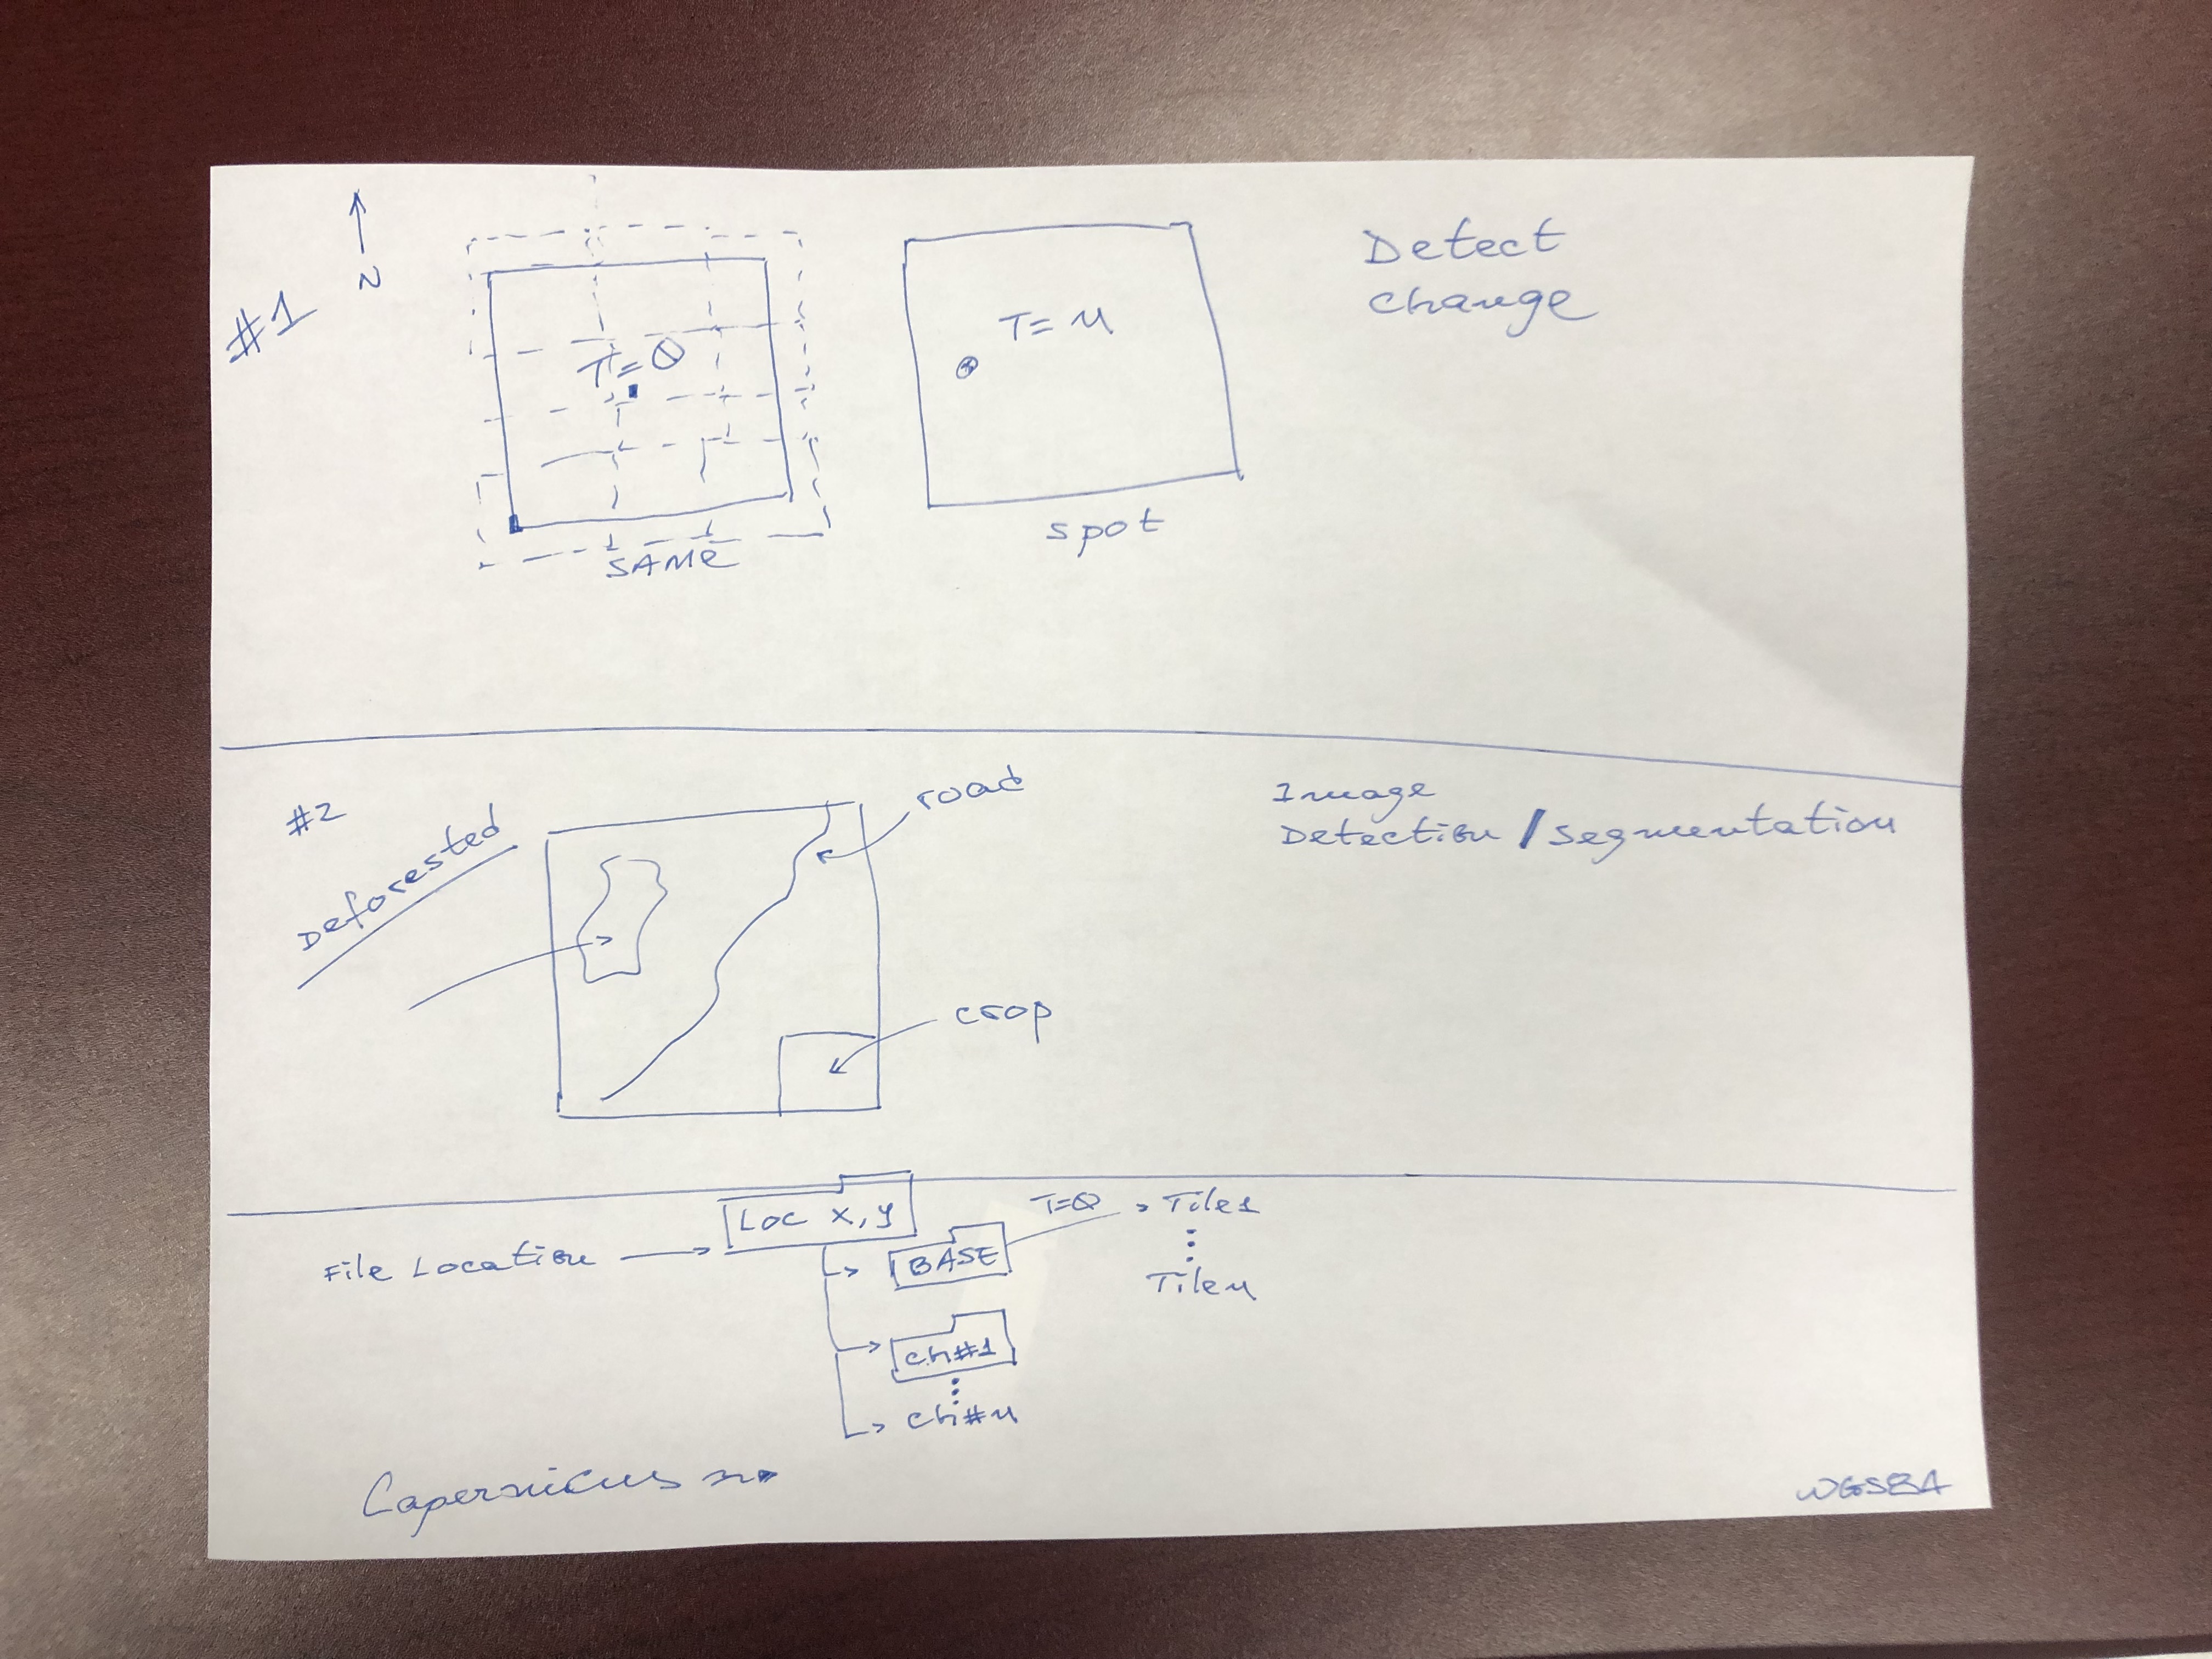 N
#1
T=0
SAME
T=n
spot
Detect
change
#2
Deforested
road
crop
Image
Detection/segmentation
File Location
Loc x,y
BASE
T=0
Tile1
Tilen
ch#1
ch#n
Copernicus
WGS84